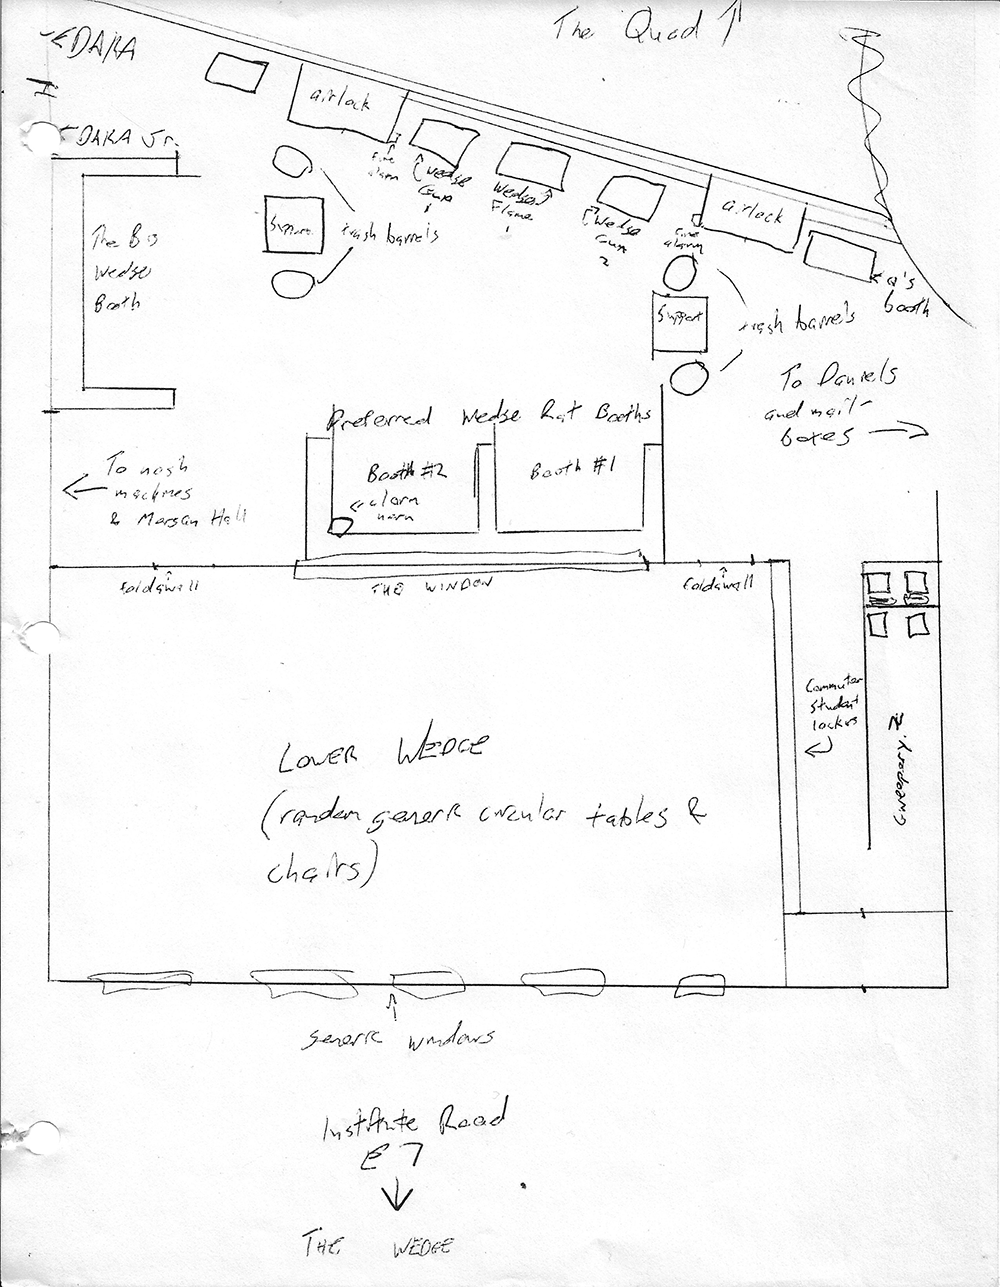 The Quad ↑
← DAKA
← DAKA Jr.
airlock
fire
alarm
Wedge
Gun
1
Wedge
Flame
1
Wedge
Gun
2
fire
alarm
airlock
Q's
booth
The Big
Wedge
Booth
Support
trash barrels
Support
trash barrels
To Daniels
and mail-
boxes →
Preferred Wedge Rat Booths
Booth #2
Booth #1
← alarm
horn
← To nash
machines
& Morgan Hall
foldawall
THE WINDOW
foldawall
Commuter
Student
lockers
LOWER WEDGE
(random generic circular tables &
chairs)
generic windows
Institute Road
↓
THE WEDGE